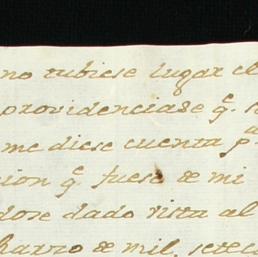 no tubiese lugar el
providencias q.^e s
me diese cuenta p.^a
cion q.^e fuese de mi
dose dado vista al
de mil, setec